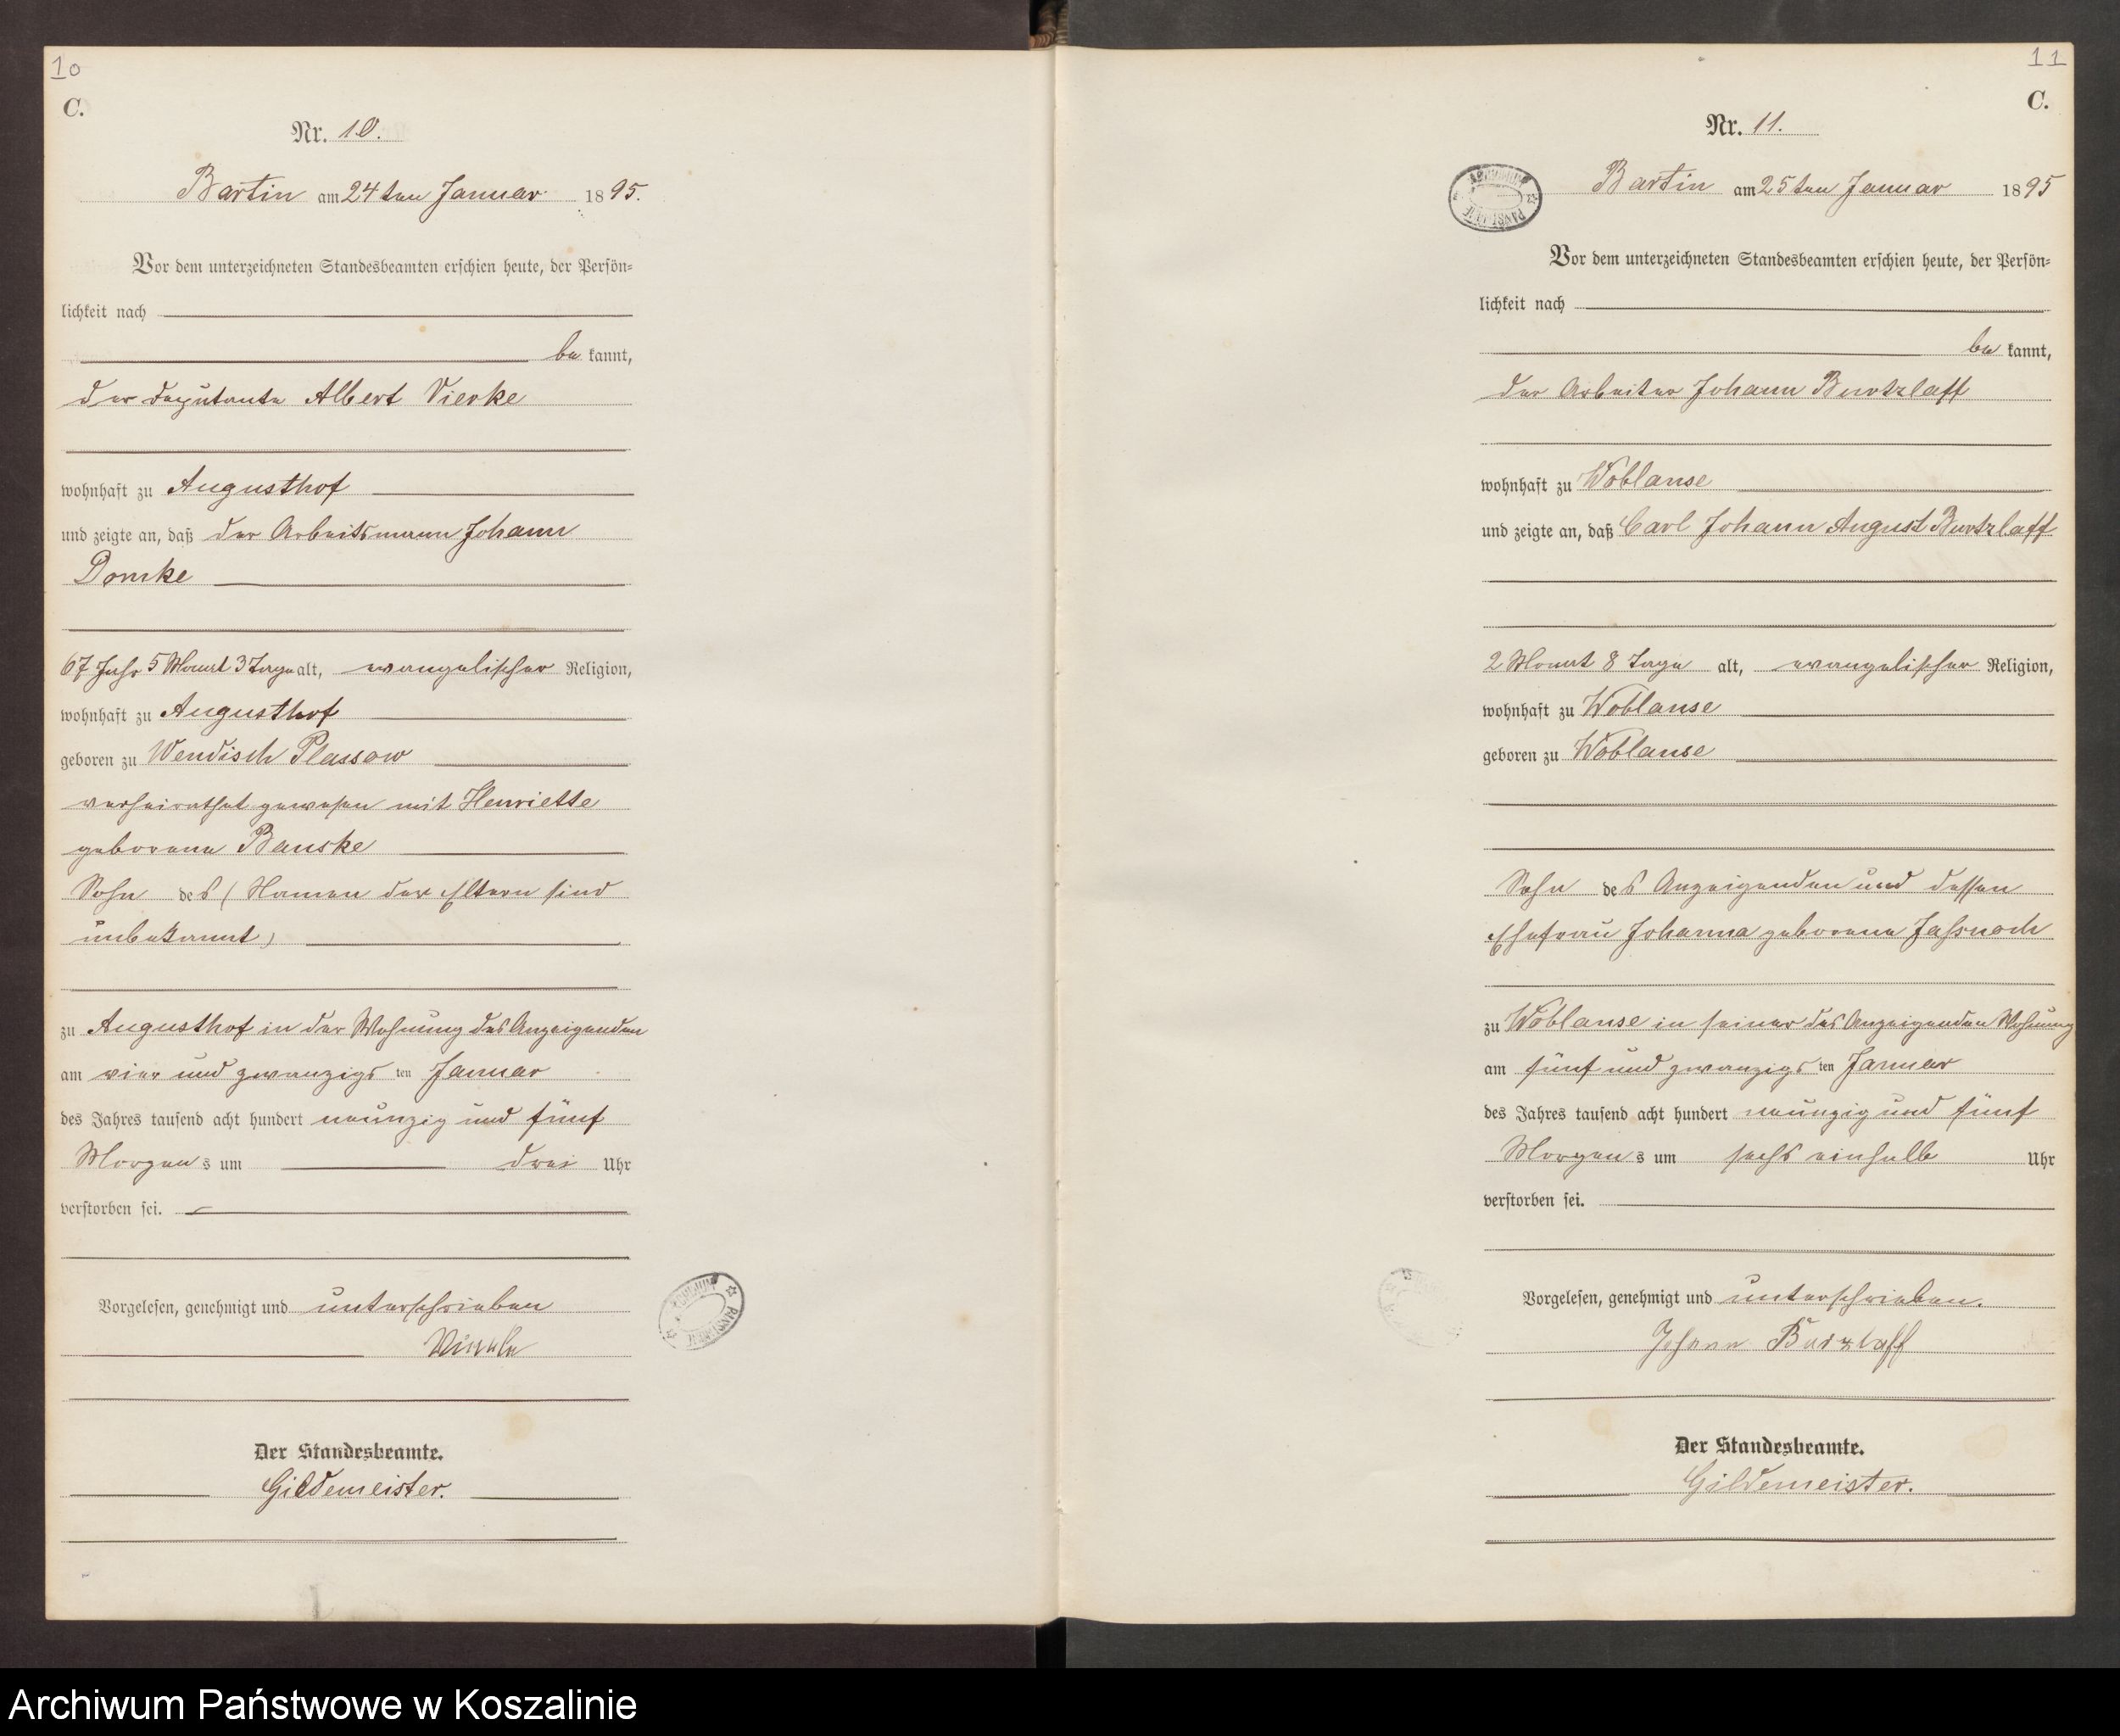 10
C.
Nr. 10.
Bartin am 24ten Januar 1895.
Vor dem unterzeichneten Standesbeamten erschien heute, der Persön-
lichkeit nach
bekannt,
der Deputante Albert Vierke
wohnhaft zu Augusthof
und zeigte an, daß der Arbeitsmann Johann
Domke
67 Jahr 5 Monat 3 Tage alt, evangelischer Religion,
wohnhaft zu Augusthof
geboren zu Wendisch Plassow
verheirathet gewesen mit Henriette
geborene Banske
Sohn des (Namen der Eltern sind
unbekannt)
zu Augusthof in der Wohnung des Anzeigenden
am vier und zwanzigsten Januar
des Jahres tausend acht hundert neunzig und fünf
Morgens um drei Uhr
verstorben sei.
Vorgelesen, genehmigt und unterschrieben
Der Standesbeamte.
Gildemeister.
ARCHIWUM PAŃSTWOWE
11
C.
Nr. 11.
Bartin am 25ten Januar 1895
Vor dem unterzeichneten Standesbeamten erschien heute, der Persön-
lichkeit nach
bekannt,
der Arbeiter Johann Burtzlaff
wohnhaft zu Woblanse
und zeigte an, daß Carl Johann August Burtzlaff
2 Monat 8 Tage alt, evangelischer Religion,
wohnhaft zu Woblanse
geboren zu Woblanse
Sohn des Anzeigenden und dessen
Ehefrau Johanna geborene
zu Woblanse in seiner des Anzeigenden Wohnung
am fünf und zwanzigsten Januar
des Jahres tausend acht hundert neunzig und fünf
Morgens um sechs einhalb Uhr
verstorben sei.
Vorgelesen, genehmigt und unterschrieben.
Johann Burzlaff
Der Standesbeamte.
Gildemeister.
Archiwum Państwowe w Koszalinie